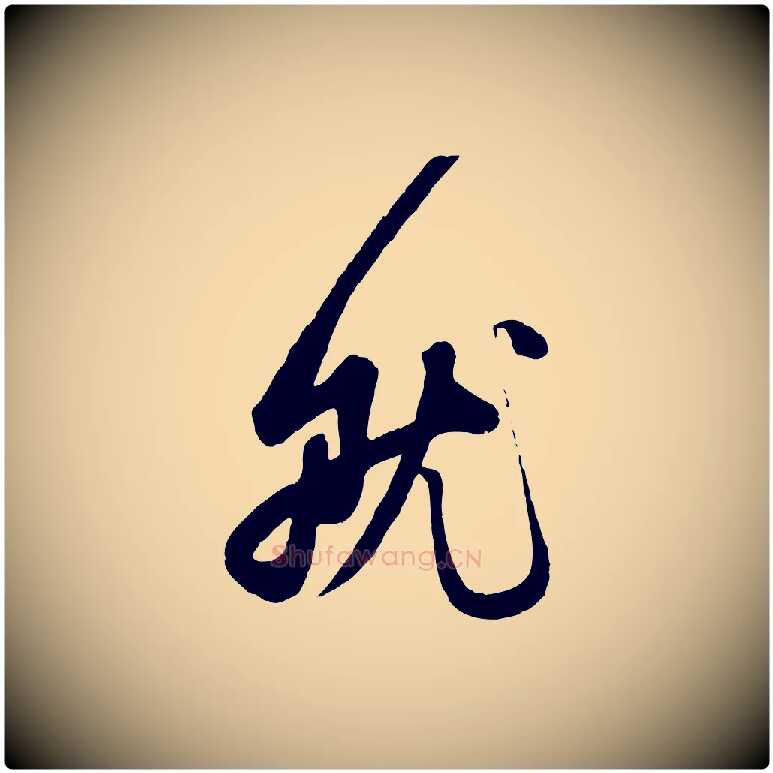 就
Shufawang.CN